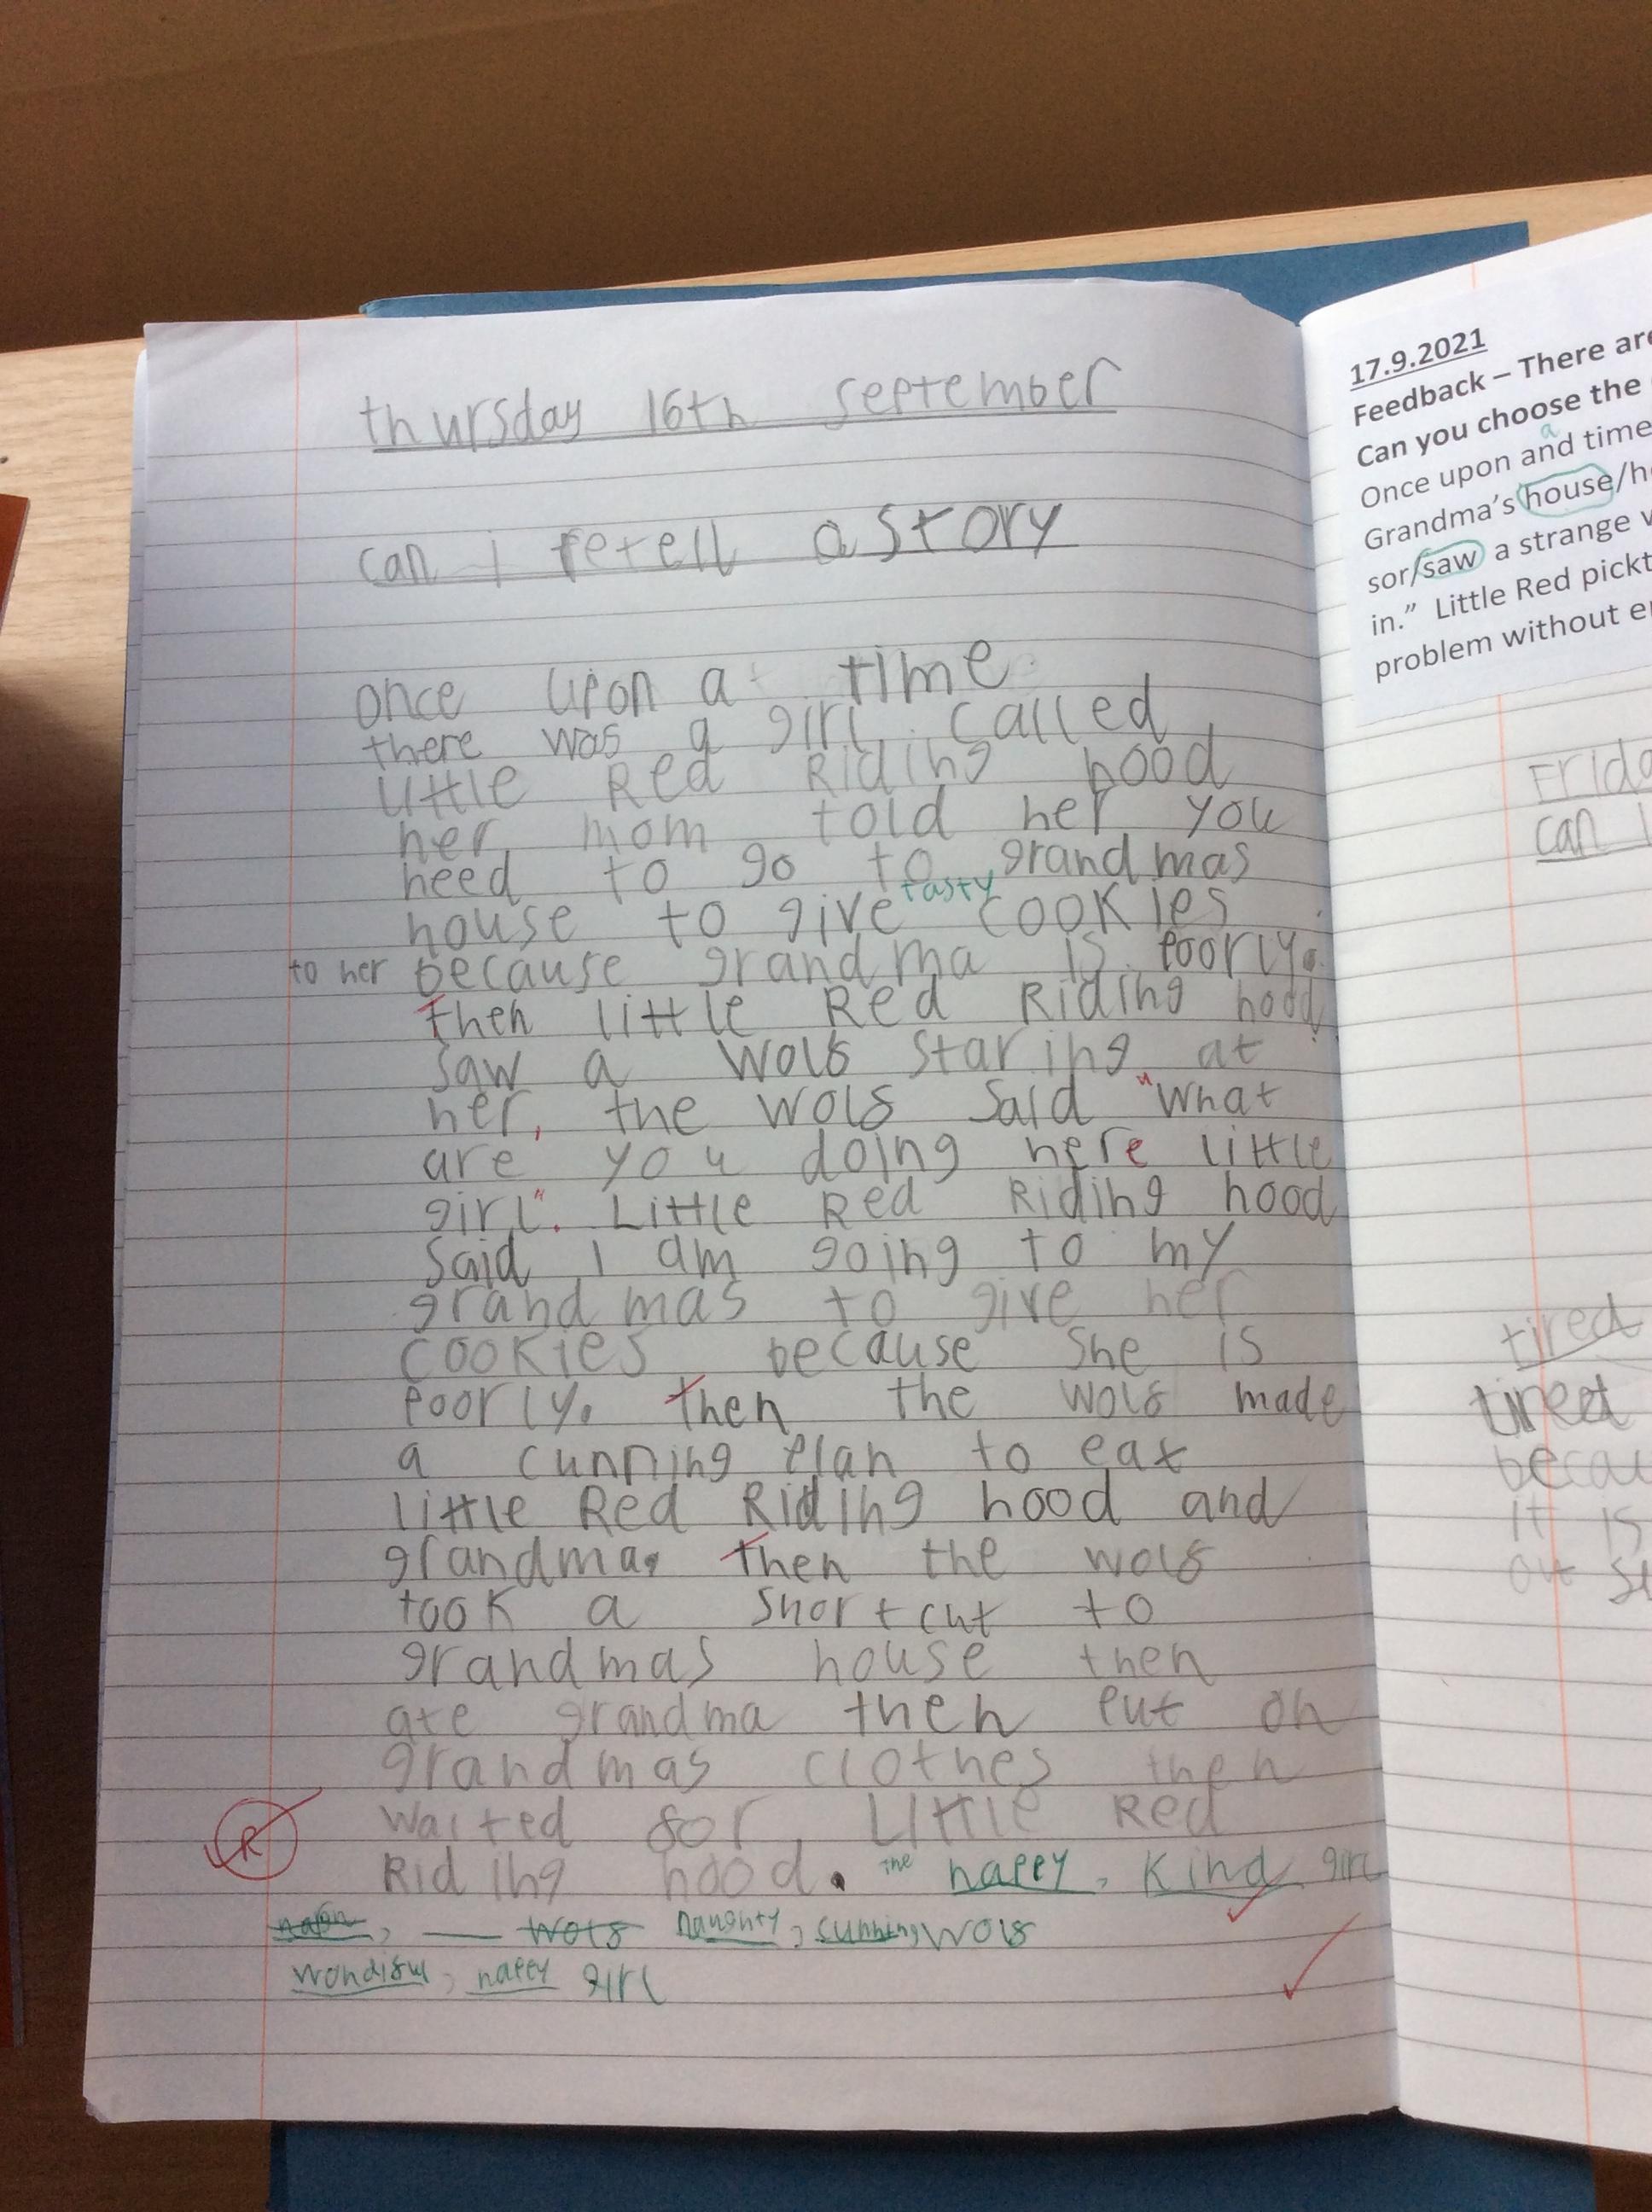 thursday 16th september
can i retell a story
once upon a time
there was a girl called
Little Red Riding hood
her mom told her you
need to go to grandmas
house to give tasty cookies
to her because grandma is poorly.
Then little Red Riding hood
saw a wolf staring at
her, the wolf said "what
are you doing here little
girl". Little Red Riding hood
said i am going to my
grandmas to give her
cookies because she is
poorly. Then the wolf made
a cunning plan to eat
little Red Riding hood and
grandma. Then the wolf
took a short cut to
grandmas house then
ate grandma then put on
grandmas clothes then
waited for Little Red
R
Riding hood. the happy, kind girl
wolf naughty, cunning wolf
wondiful, happy girl
17.9.2021
Feedback – There are
Can you choose the
a
Once upon and time
Grandma's house/h
sor/saw a strange
in." Little Red pickt
problem without e
Frida
can i
tired
tired
becau
it is
out s